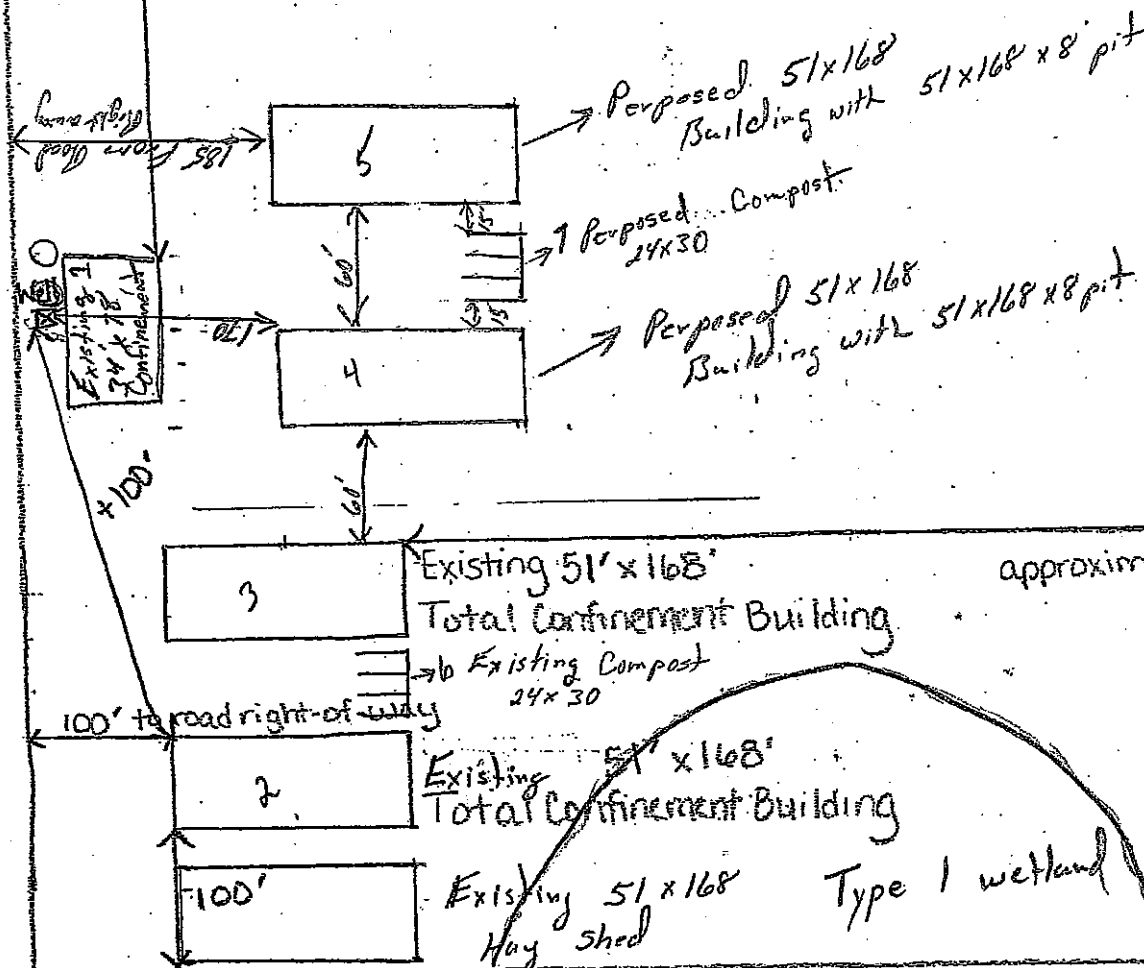 Perposed 51x168
Building with 51x168x8' pit
Right away
From Road
185'
5
15'
7 Perposed Compost
24x30
60'
15'
Existing 1
Confinement
170
Perposed 51x168
Building with 51x168x8 pit
4
+100-
60'
3
Existing 51'x168'
Total Confinement Building
approxim
6 Existing Compost
24x30
100' to road right-of-way
2
Existing 51'x168'
Total Confinement Building
100'
Existing 51x168
Hay Shed
Type 1 wetland